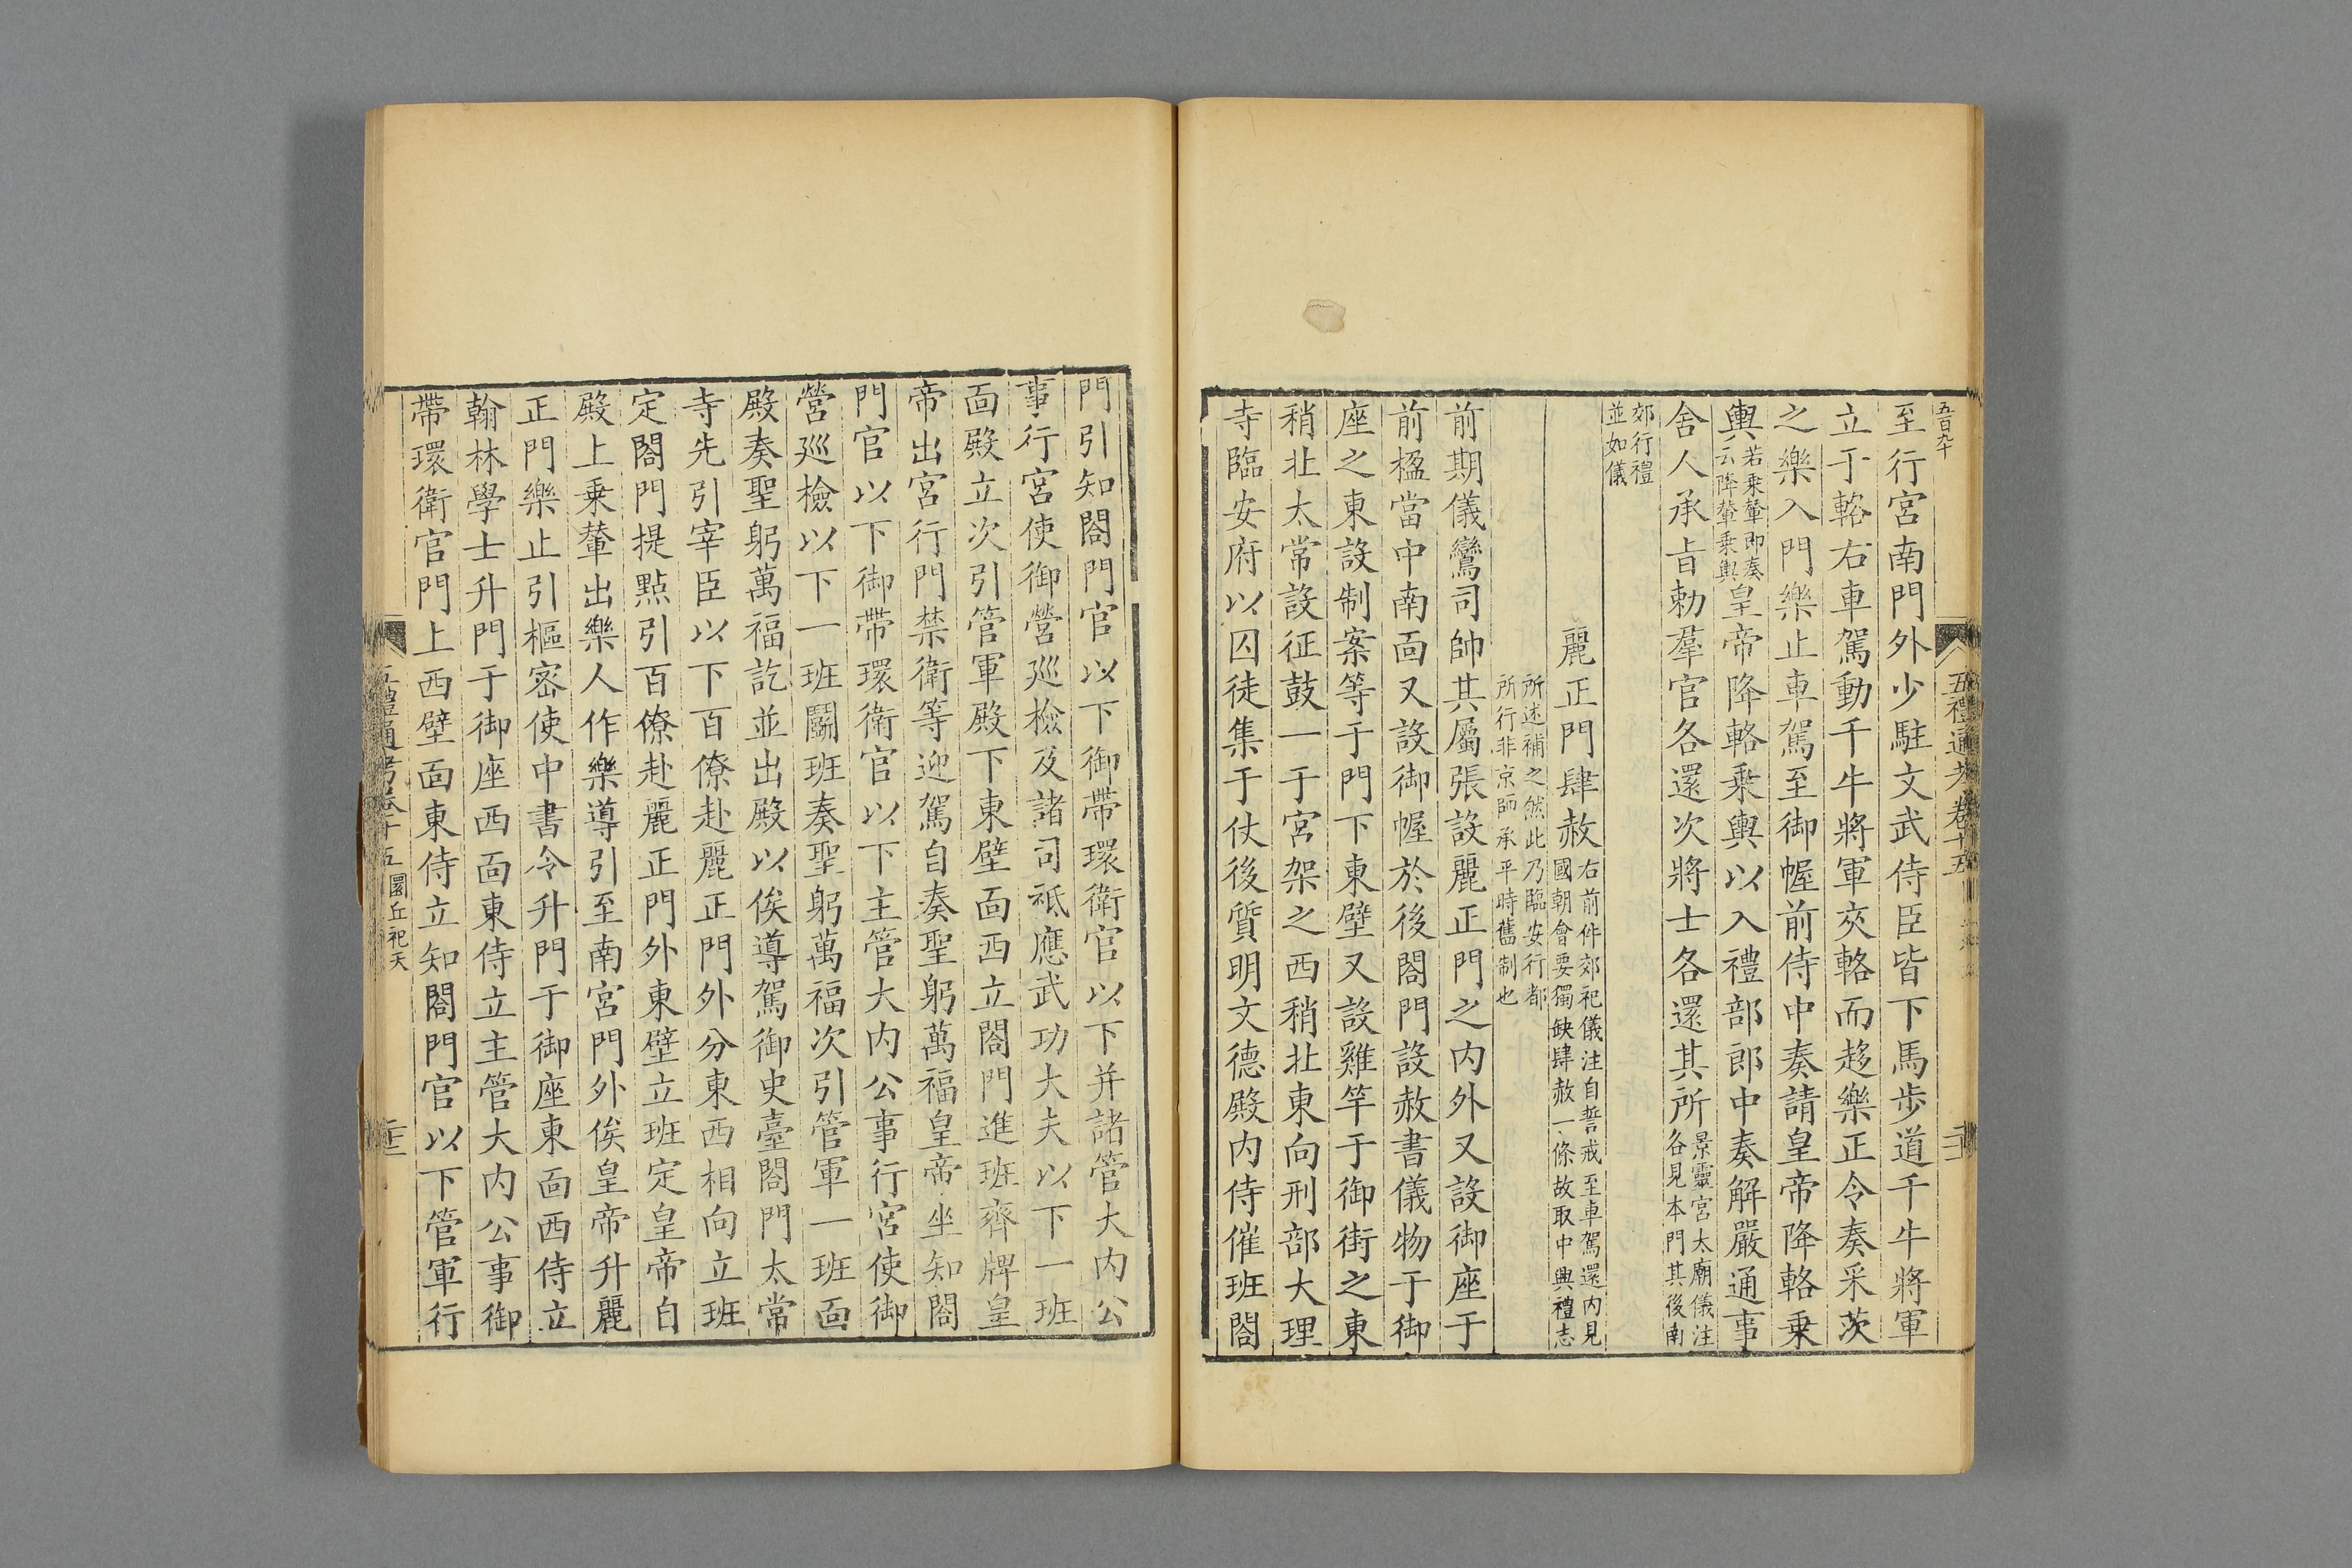 五百九十
五禮通考卷十五
至行宮南門外少駐文武侍臣皆下馬步道千牛將軍
立于輅右車駕動千牛將軍夾輅而趍樂正令奏采茨
之樂入門樂止車駕至御幄前侍中奏請皇帝降輅乗
輿若乗輦即奏云降輦乗輿皇帝降輅乗輿以入禮部郎中奏解嚴通事
舍人承旨勅羣官各還次將士各還其所景靈宮太廟儀注各見本門其後南
郊行禮並如儀
麗正門肆赦右前件郊祀儀注自誓戒至車駕還内見國朝會要獨缺肆赦一條故取中興禮志
所述補之然此乃臨安行都所行非京師承平時舊制也
前期儀鸞司帥其屬張設麗正門之内外又設御座于
前楹當中南靣又設御幄於後閤門設赦書儀物于御
座之東設制案等于門下東壁又設雞竿于御街之東
稍北太常設征鼓一于宮架之西稍北東向刑部大理
寺臨安府以囚徒集于仗後質明文德殿内侍催班閤
門引知閤門官以下御帶環衛官以下并諸管大内公
事行宮使御營廵檢及諸司祗應武功大夫以下一班
靣殿立次引管軍殿下東壁靣西立閤門進班齊牌皇
帝出宮行門禁衛等迎駕自奏聖躬萬福皇帝坐知閤
門官以下御帶環衛官以下主管大内公事行宮使御
營廵檢以下一班鬭班奏聖躬萬福次引管軍一班靣
殿奏聖躬萬福訖並出殿以俟導駕御史臺閤門太常
寺先引宰臣以下百僚赴麗正門外分東西相向立班
定閤門提㸃引百僚赴麗正門外東壁立班定皇帝自
殿上乗輦出樂人作樂導引至南宮門外俟皇帝升麗
正門樂止引樞密使中書令升門于御座東靣西侍立
翰林學士升門于御座西靣東侍立主管大内公事御
帶環衛官門上西壁靣東侍立知閤門官以下管軍行
五禮通考卷十五 圜丘祀天